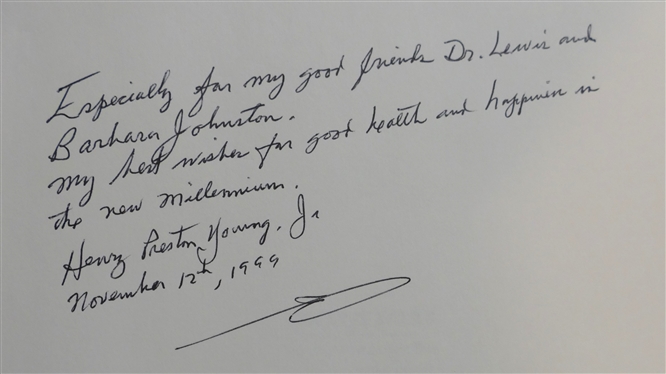 Especially for my good friends Dr. Lewis and
Barbara Johnston.
My best wishes for good health and happiness in
the new millennium.
Henry Preston Young, Jr
November 12th, 1999